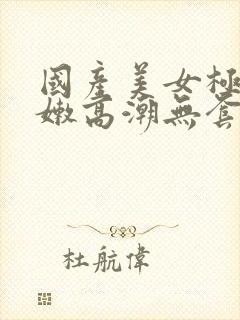 國產美女極
嫩高潮無套
杜航偉